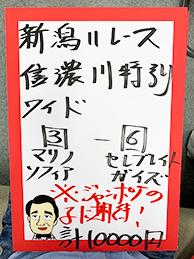 新潟11レース
信濃川特別
ワイド
3 - 6
マリノ セレブレイト
ソフィア ガイズ
※ジャンポケの
子に謝罪!
計10000円